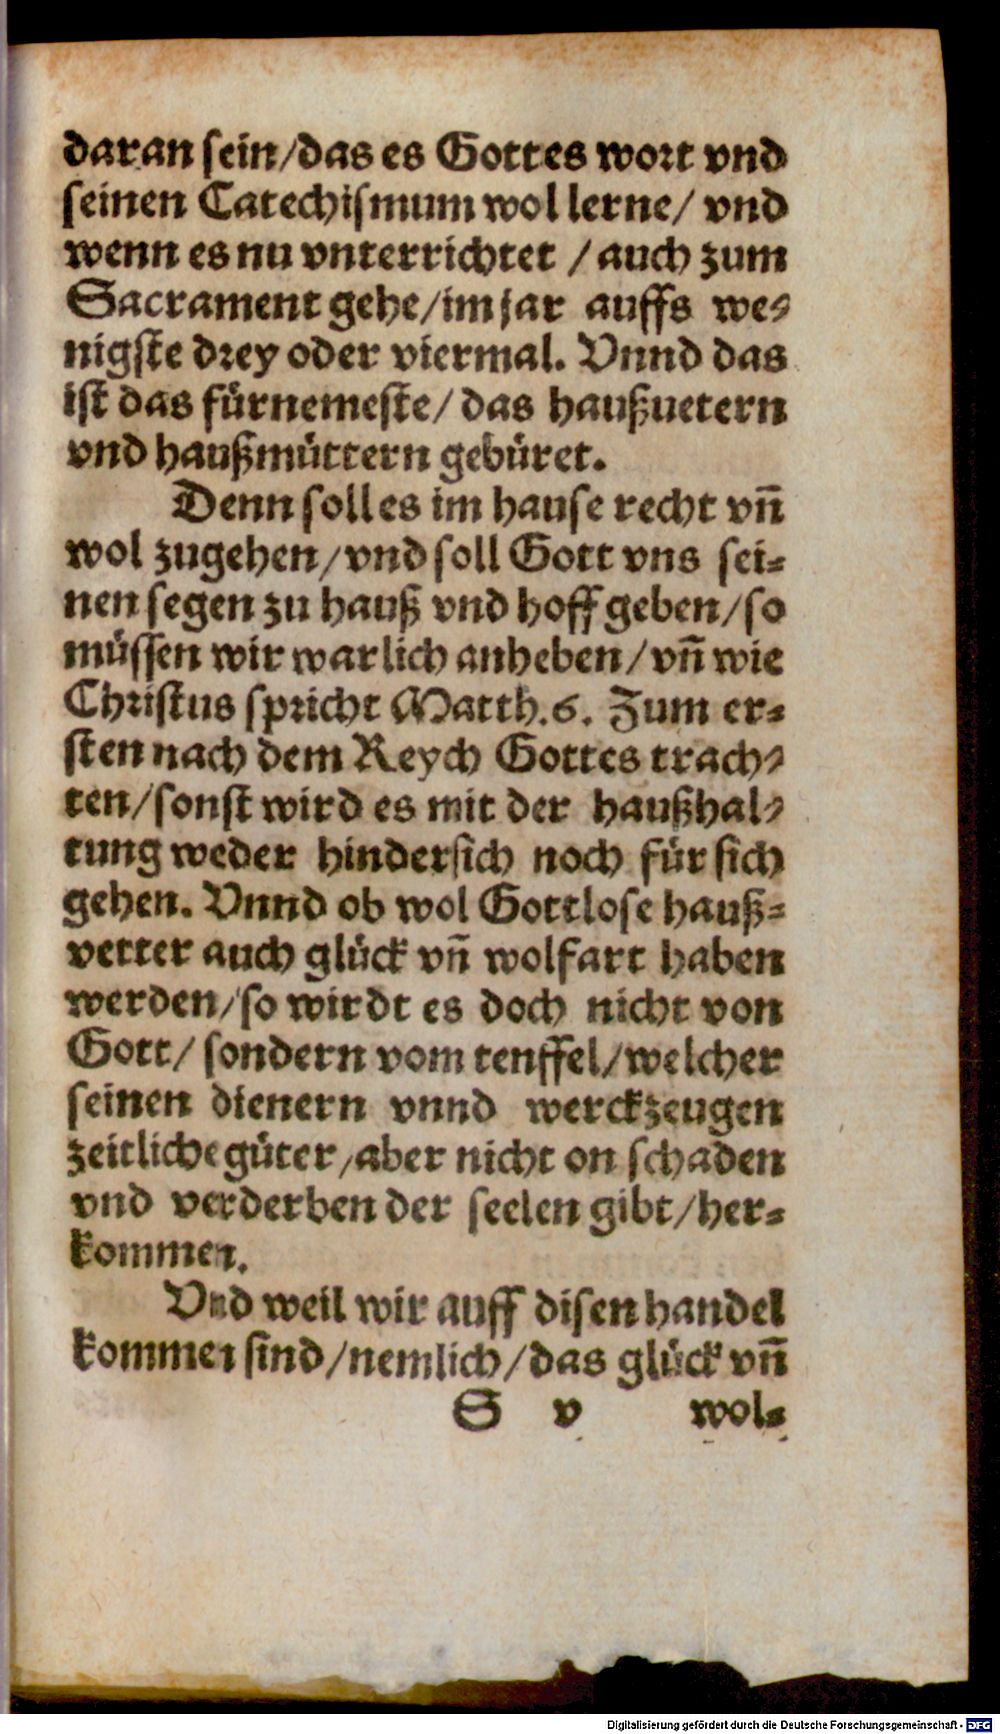 daran sein/das es Gottes wort vnd
seinen Catechismum wol lerne/ vnd
wenn es nu vnterrichtet /auch zum
Sacrament gehe/im jar auffs we-
nigste drey oder viermal. Vnnd das
ist das fürnemeste/ das haußuetern
vnd haußmüttern gebüret.
Denn soll es im hause recht vñ
wol zugehen/vnd soll Gott vns sei-
nen segen zu hauß vnd hoff geben/so
müssen wir warlich anheben/vñ wie
Christus spricht Matth.6. Zum er-
sten nach dem Reych Gottes trach-
ten/sonst wird es mit der haußhal-
tung weder hindersich noch für sich
gehen. Vnnd ob wol Gottlose hauß-
vetter auch glück vñ wolfart haben
werden/so wirdt es doch nicht von
Gott/ sondern vom tenffel/welcher
seinen dienern vnnd werckzeugen
zeitliche güter/aber nicht on schaden
vnd verderben der seelen gibt/her-
kommen.
Vnd weil wir auff disen handel
kommen sind/nemlich/das glück vñ
S v wol-
Digitalisierung gefördert durch die Deutsche Forschungsgemeinschaft - DFG